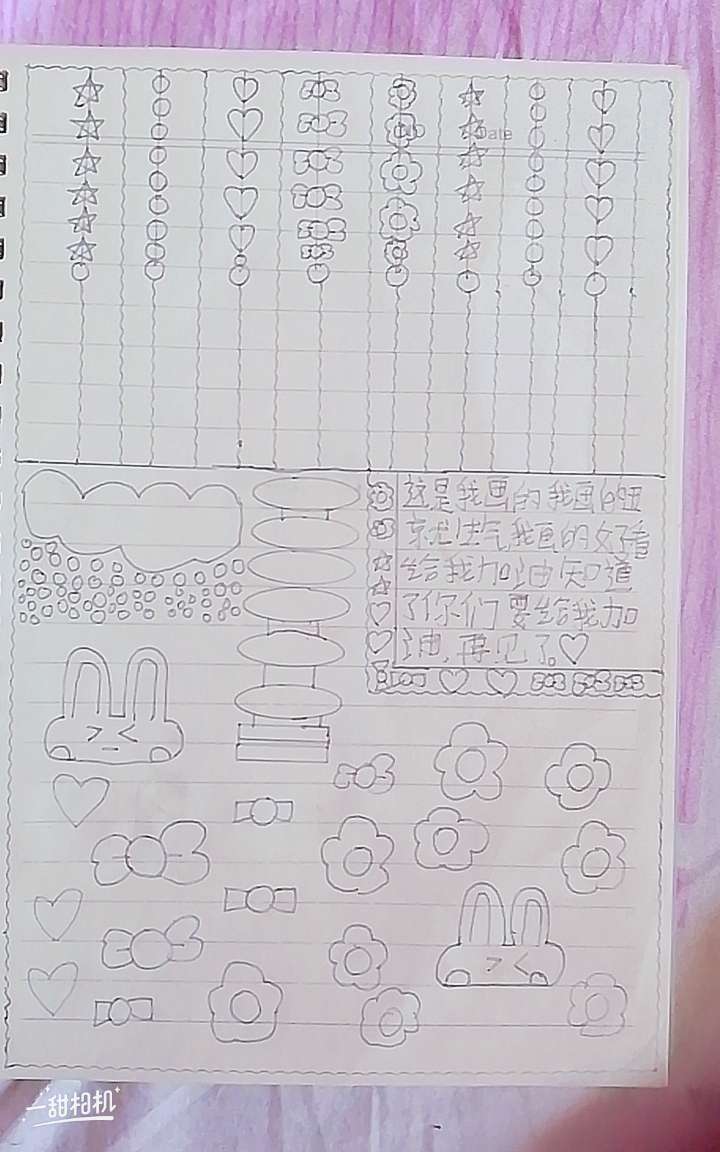 Date
这是我画的我画的
我画的好看
给我加油知道
了你们要给我加
油,再见了。♡
一甜相机